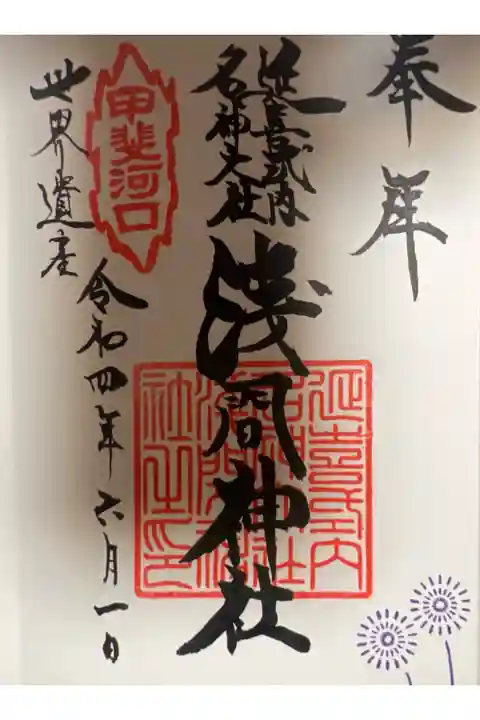 奉拝
延喜式内
名神大社
浅間神社
甲斐河口
世界遺産
令和四年六月一日
延喜式内
名神大社
浅間神社
社之印